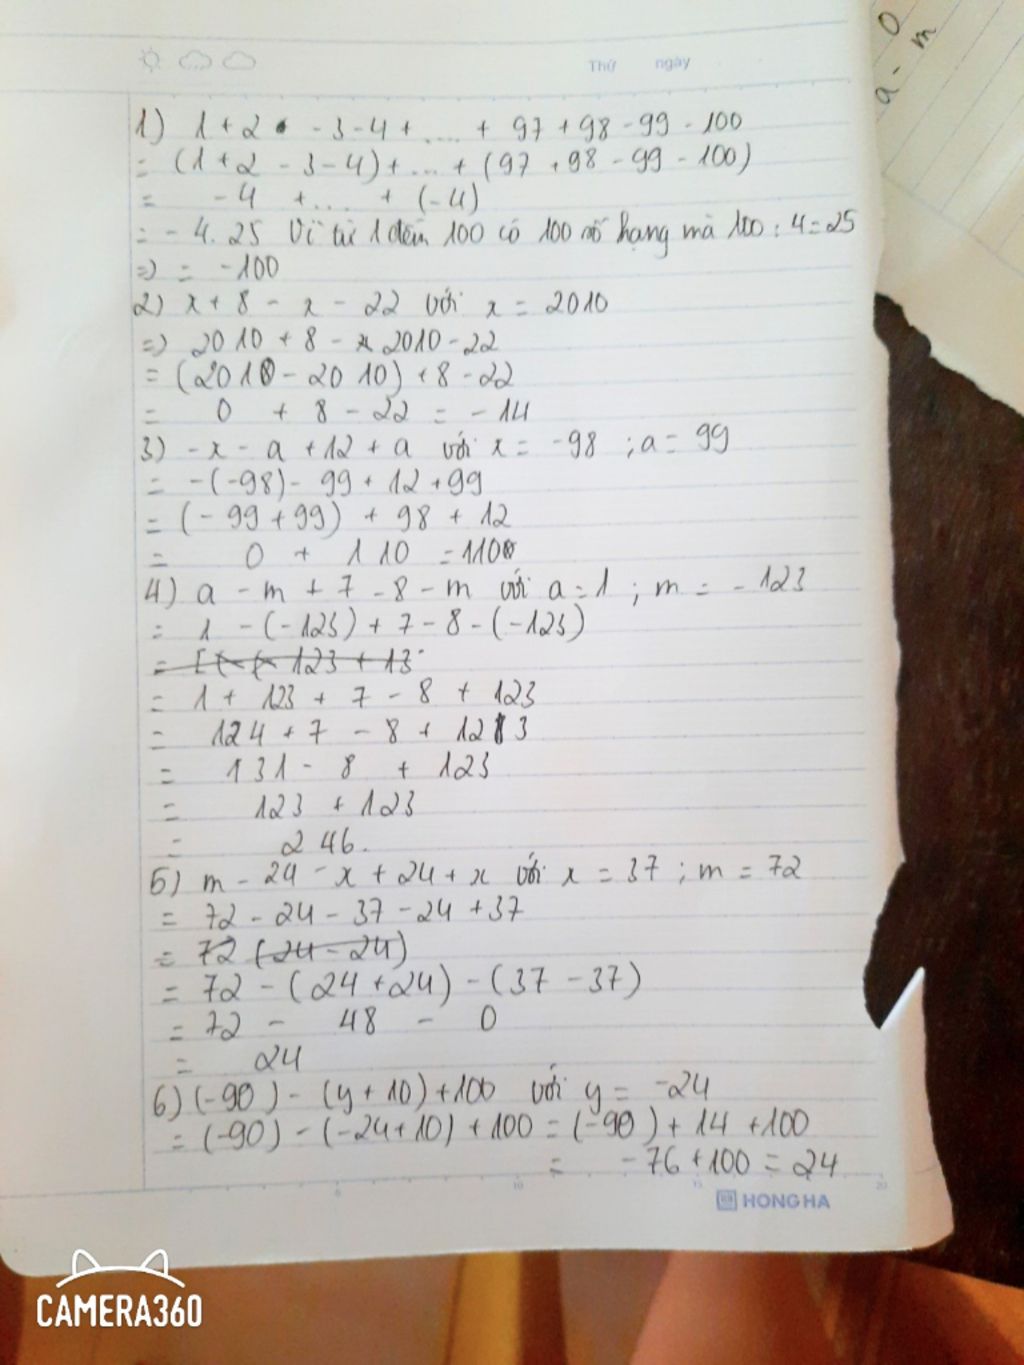 Thứ ngày
a - m
0
1) 1 + 2 - 3 - 4 + .... + 97 + 98 - 99 - 100
= (1 + 2 - 3 - 4) + ... + (97 + 98 - 99 - 100)
= - 4 + .... + (- 4)
= - 4 . 25 Vì từ 1 đến 100 có 100 số hạng mà 100 : 4 = 25
=> = - 100
2) x + 8 - x - 22 với x = 2010
=> 2010 + 8 - 2010 - 22
= (2010 - 2010) + 8 - 22
= 0 + 8 - 22 = - 14
3) - x - a + 12 + a với x = - 98 ; a = 99
= - (-98) - 99 + 12 + 99
= (- 99 + 99) + 98 + 12
= 0 + 110 = 110
4) a - m + 7 - 8 - m với a = 1 ; m = - 123
= 1 - (-123) + 7 - 8 - (-123)
= 1 + 123 + 7 - 8 + 123
= 124 + 7 - 8 + 123
= 131 - 8 + 123
= 123 + 123
= 246.
5) m - 24 - x + 24 + x với x = 37 ; m = 72
= 72 - 24 - 37 - 24 + 37
= 72 (24 - 24)
= 72 - (24 + 24) - (37 - 37)
= 72 - 48 - 0
= 24
6) (-90) - (y + 10) + 100 với y = -24
= (-90) - (-24 + 10) + 100 = (-90) + 14 + 100
= - 76 + 100 = 24
5 10 15 20
HONG HA
CAMERA360